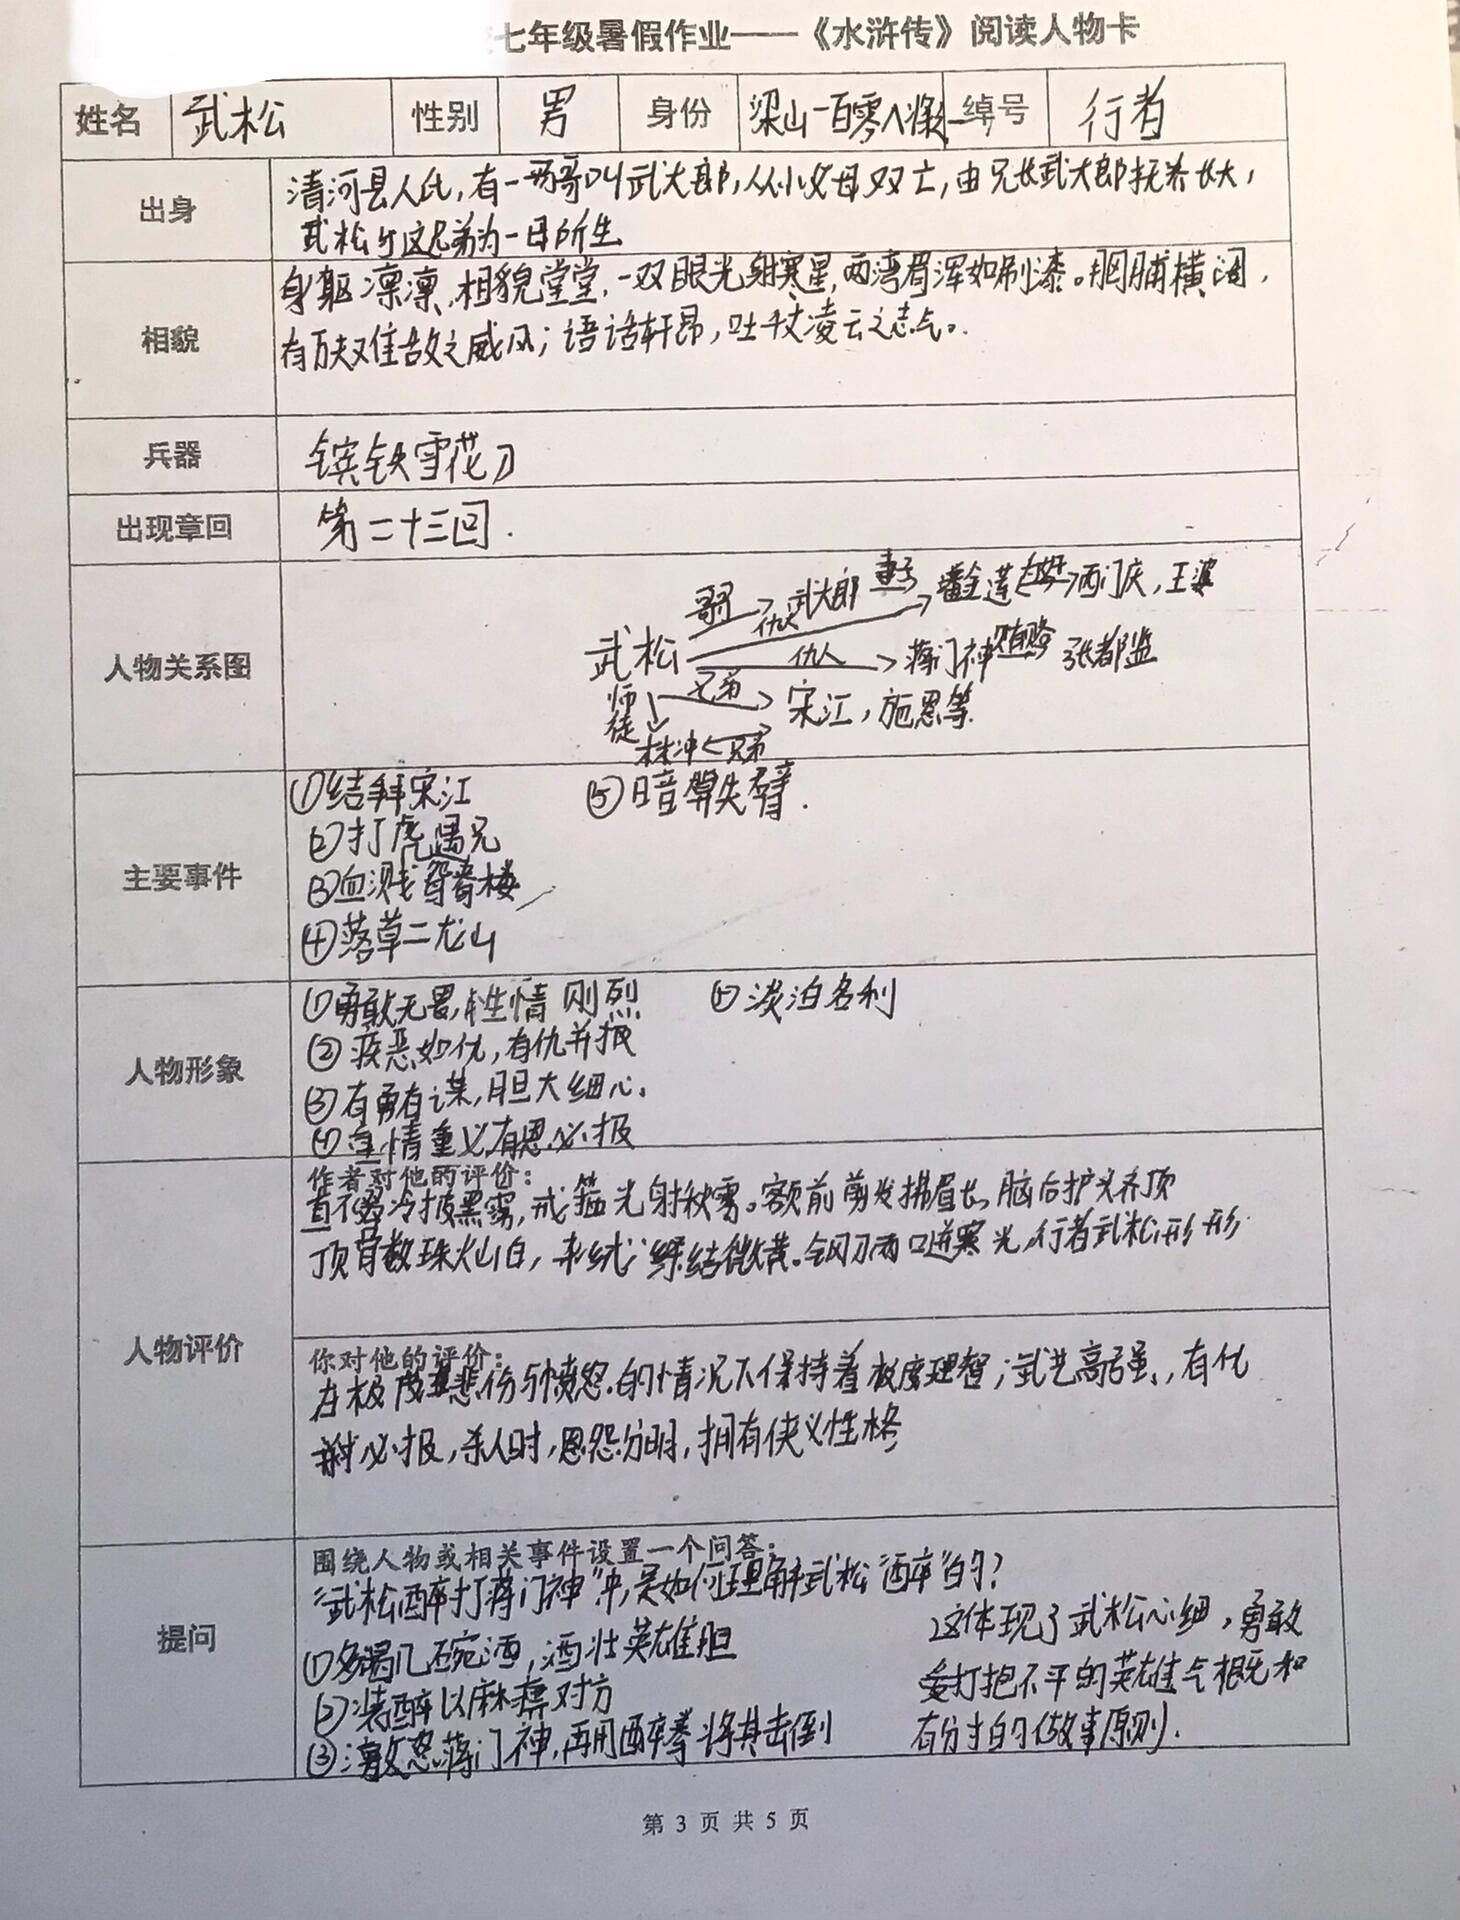 七年级暑假作业——《水浒传》阅读人物卡
姓名 武松 性别 男 身份 梁山一百零八将之一 绰号 行者
出身
清河县人氏,有一哥叫武大郎,从小父母双亡,由兄长武大郎抚养长大,
武松与这兄弟为一母所生
相貌
身躯凛凛,相貌堂堂,一双眼光射寒星,两湾眉浑如刷漆。胸脯横阔,
有万夫难敌之威风;语话轩昂,吐千丈凌云之志气。
兵器
镔铁雪花刀
出现章回
第二十三回.
人物关系图
哥哥 武大郎 妻子 潘金莲 西门庆,王婆
仇人
武松 仇人 蒋门神 张都监
师徒 兄弟 宋江,施恩等
林冲 兄弟
主要事件
①结拜宋江 ⑤暗算失臂.
②打虎遇兄
③血溅鸳鸯楼
④落草二龙山
人物形象
①勇敢无畏,性情刚烈 ⑤淡泊名利
②疾恶如仇,有仇并报
③有勇有谋,胆大细心.
④重情重义,有恩必报
人物评价
作者对他的评价:
直裰冷披黑雾,戒箍光射秋霜。额前剪发拂眉长,脑后护头齐顶
顶骨数珠灿白,杂绒绦结微黄。钢刀两口迸寒光,行者武松形形
你对他的评价:
在极度悲伤与愤怒的情况下保持着极度理智;武艺高强,有仇
必报,杀人时,恩怨分明,拥有侠义性格
提问
围绕人物或相关事件设置一个问答:
“武松醉打蒋门神”中,是如何理解武松“醉”的?
①多喝几碗酒,酒壮英雄胆
②装醉以麻痹对方
③激怒蒋门神,再用醉拳将其击倒
这体现了武松心细,勇敢
打抱不平的英雄气概和
有分寸的做事原则.
第 3 页 共 5 页